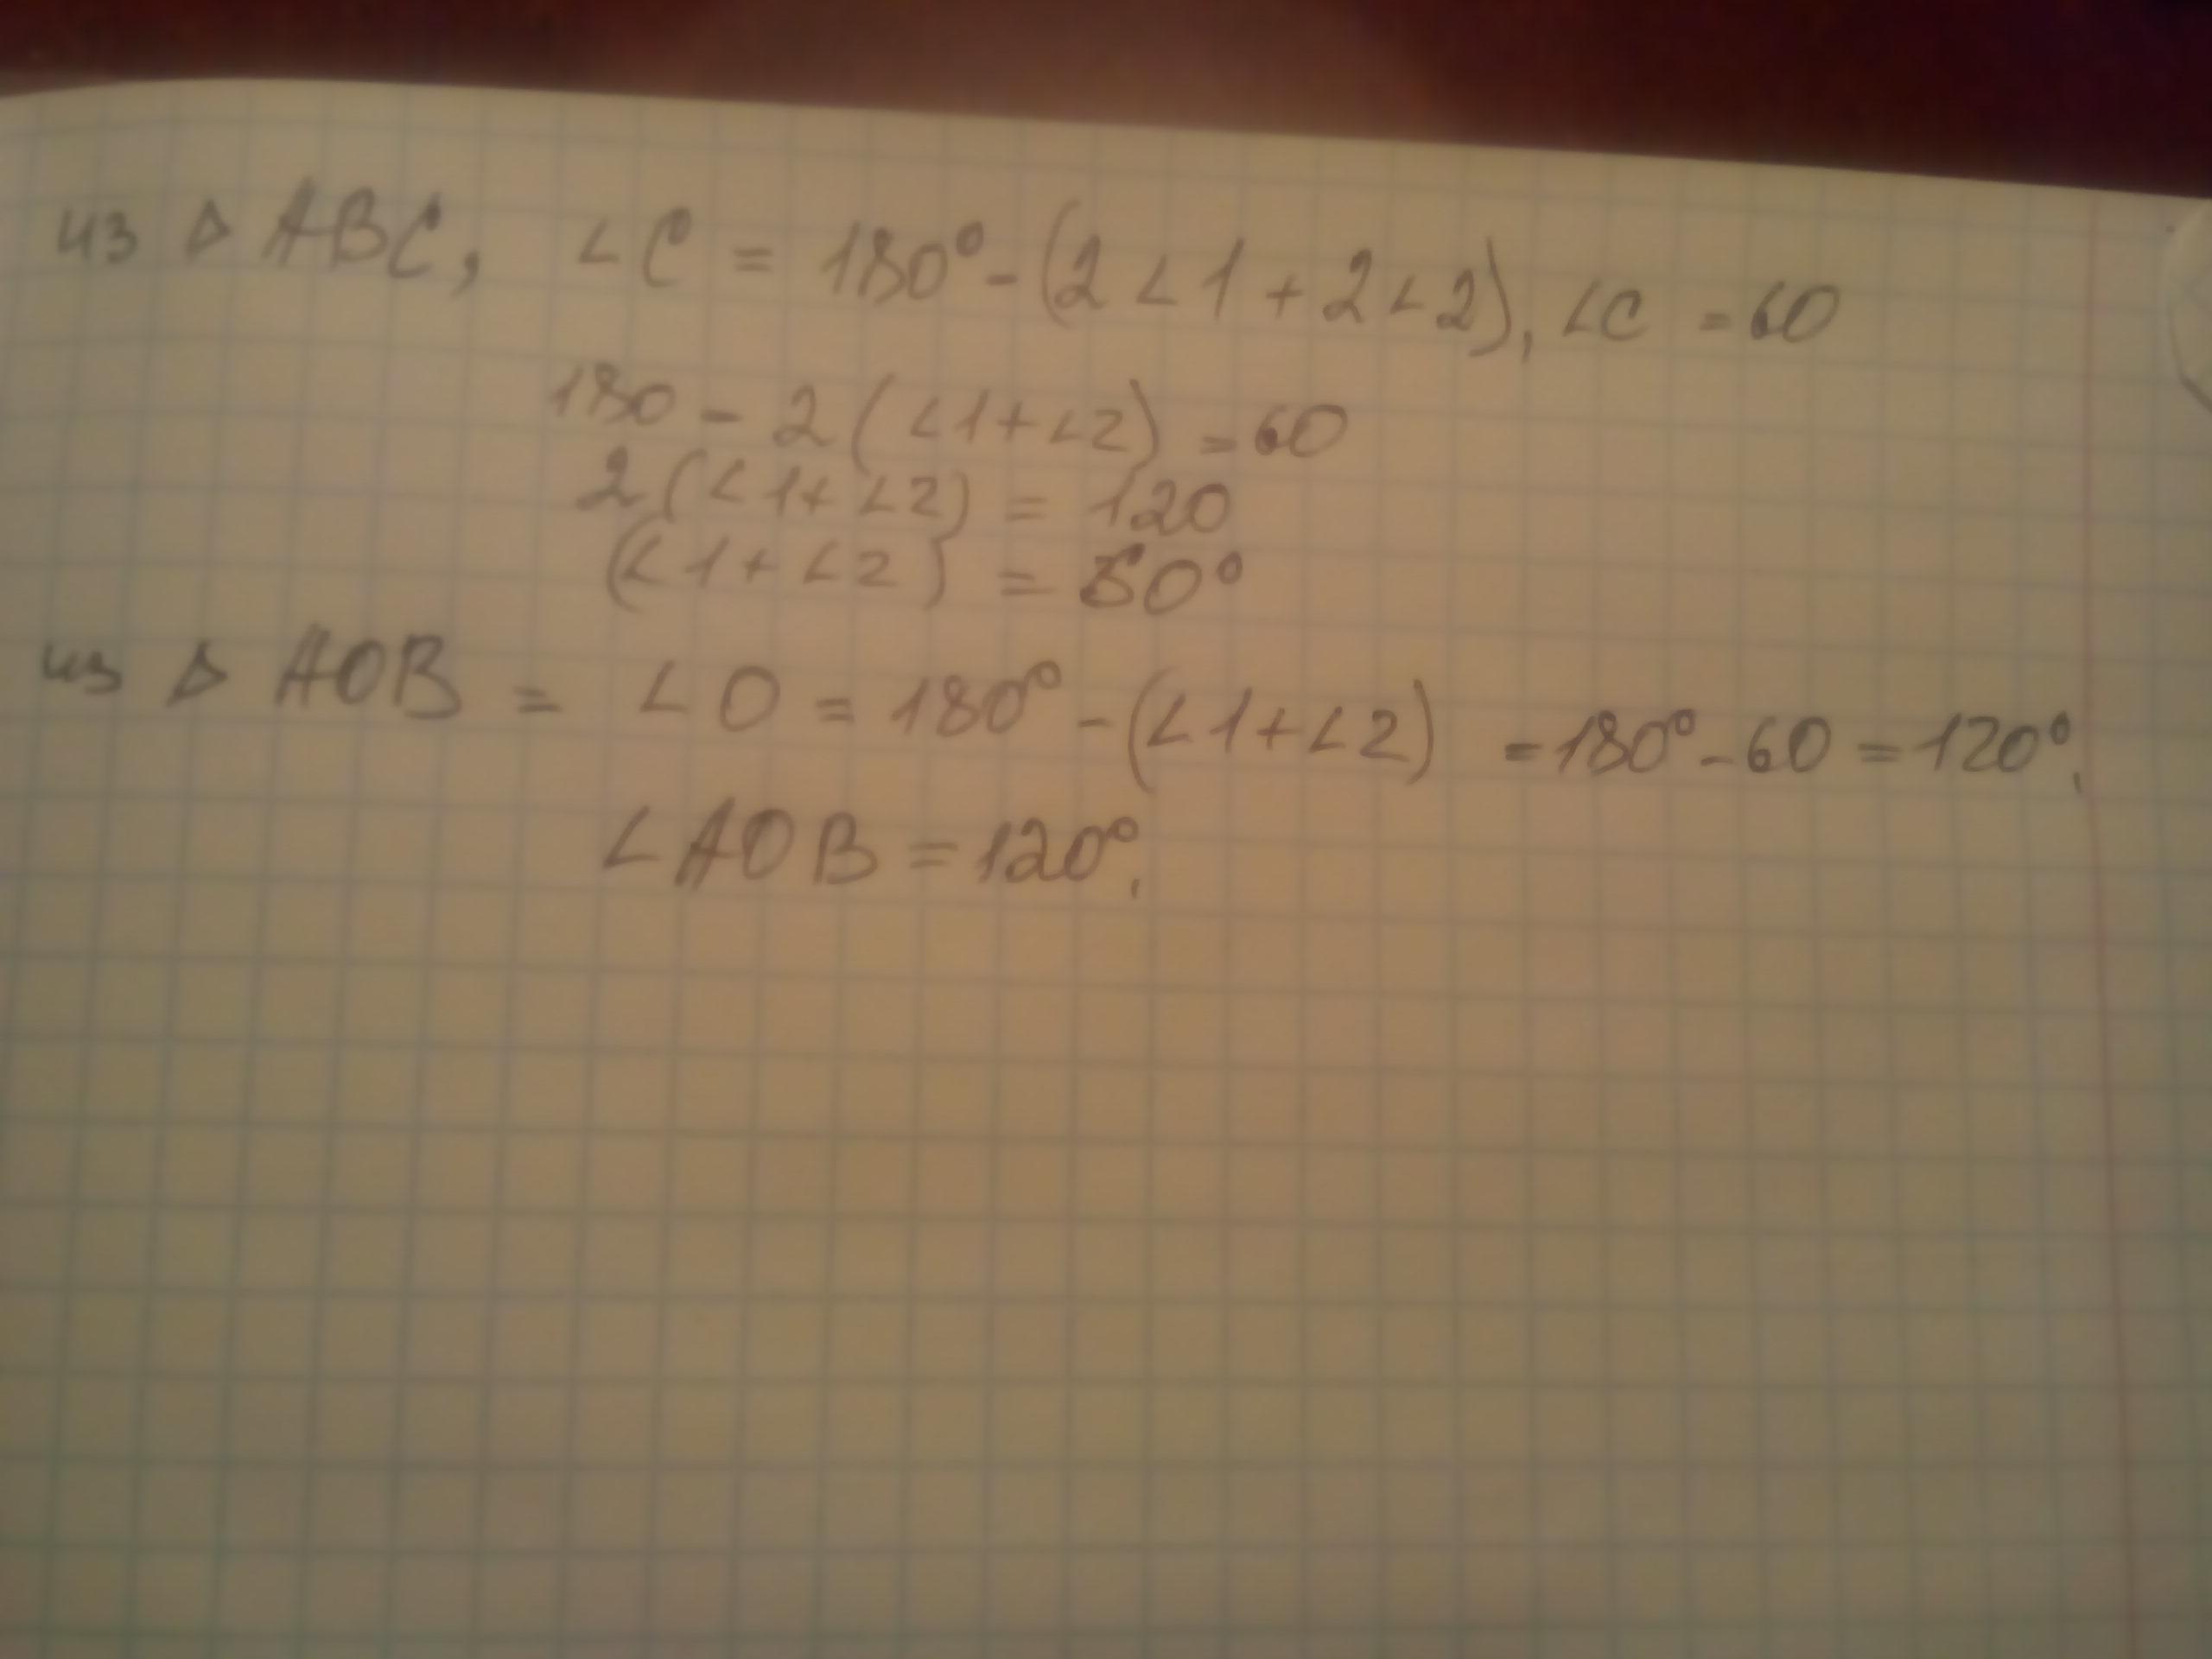 из Δ ABC, ∠C = 180° - (2∠1 + 2∠2), ∠C = 60
180 - 2(∠1+∠2) = 60
2(∠1+∠2) = 120
(∠1+∠2) = 60°
из Δ AOB = ∠O = 180° - (∠1+∠2) = 180° - 60 = 120°.
∠AOB = 120°.